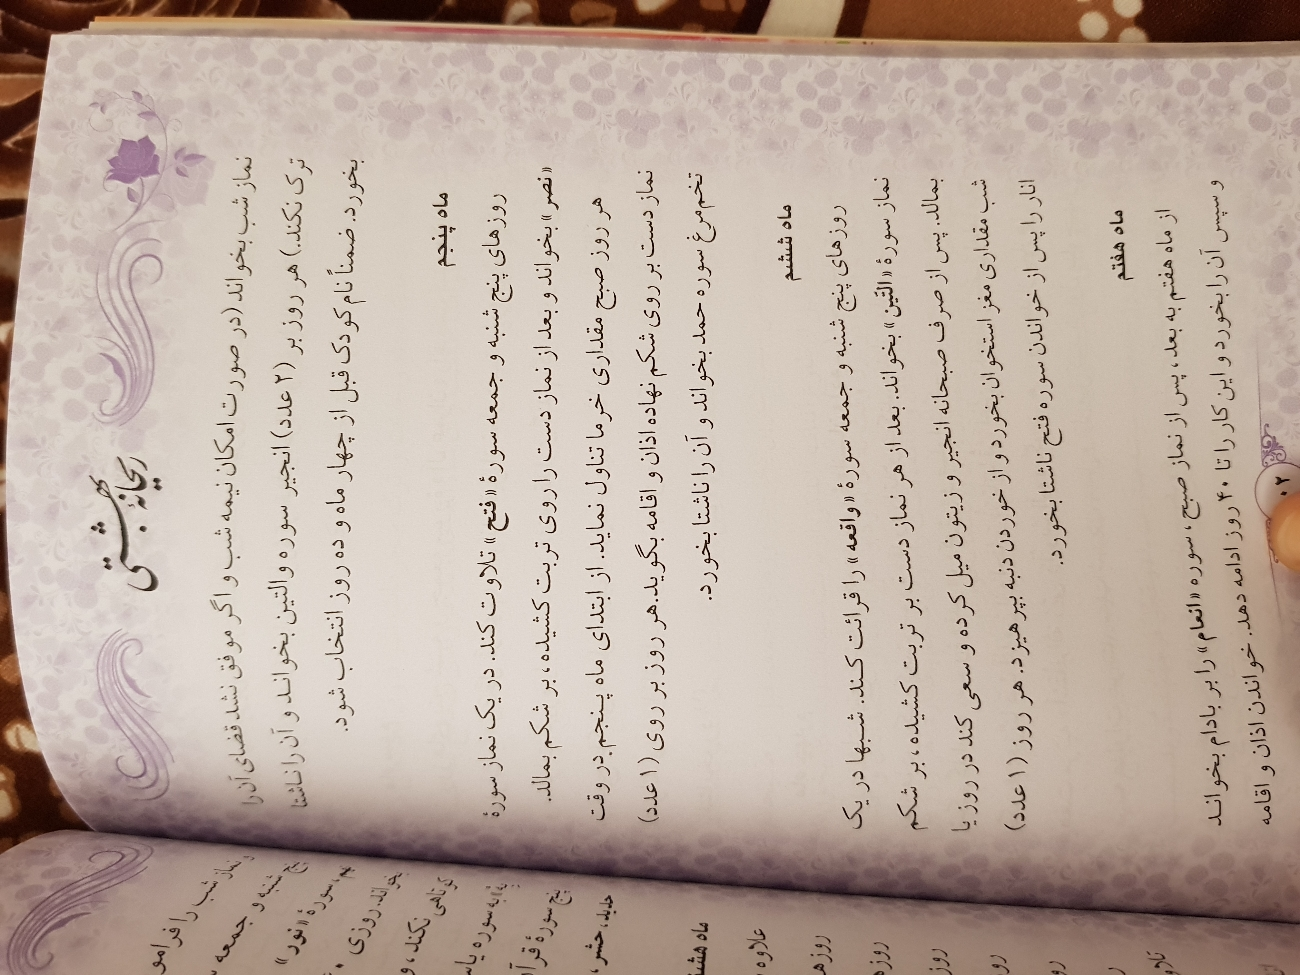 ریحانه بهشتی
نماز شب بخواند (در صورت امکان نیمه شب و اگر موفق نشد قضای آن را
ترک نکند.) هر روز بر (۲ عدد) انجیر سوره والتین بخواند و آن را ناشتا
بخورد. ضمناً نام کودک قبل از چهار ماه و ده روز انتخاب شود.
ماه پنجم
روزهای پنج شنبه و جمعه سورهٔ «فتح» تلاوت کند. در یک نماز سورهٔ
«نصر» بخواند و بعد از نماز دست را روی تربت کشیده، بر شکم بمالد.
هر روز صبح مقداری خرما تناول نماید. از ابتدای ماه پنجم در وقت
نماز دست بر روی شکم نهاده اذان و اقامه بگوید. هر روز بر روی (۱ عدد)
تخم‌مرغ سوره حمد بخواند و آن را ناشتا بخورد.
ماه ششم
روزهای پنج شنبه و جمعه سورهٔ «واقعه» را قرائت کند. شبها در یک
نماز سورهٔ «التّین» بخواند. بعد از هر نماز دست بر تربت کشیده، بر شکم
بمالد. پس از صرف صبحانه انجیر و زیتون میل کرده و سعی کند در روز یا
شب مقداری مغز استخوان بخورد و از خوردن دنبه بپرهیزد. هر روز (۱ عدد)
انار را پس از خواندن سوره فتح ناشتا بخورد.
ماه هفتم
از ماه هفتم به بعد، پس از نماز صبح، سوره «انعام» را بر بادام بخواند
و سپس آن را بخورد و این کار را تا ۴۰ روز ادامه دهد. خواندن اذان و اقامه
و نماز شب را فرامو
پنج شنبه و جمعه
سورهٔ «نور»
بخواند. روزی
کوتاهی نکند، و
به سوره یاس
پنج سورهٔ قرآ
حدید، حشر،
ماه هشت
علاوه
روزه
روزه
روز
رو
رو